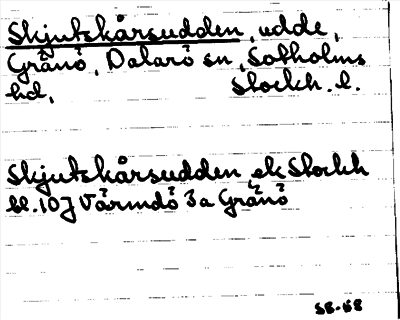 Skjutskårsudden, udde,
Gränö, Dalarö sn, Sotholms
hd, Stockh. l.
Skjutskårsudden ek Stockh
bl. 10J Värmdö 3a Gränö
SB-68